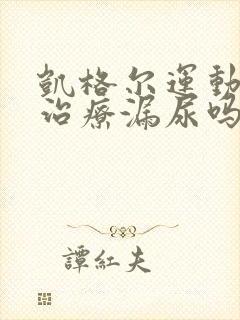 凱格尔運動
治療漏尿吗
譚紅夫